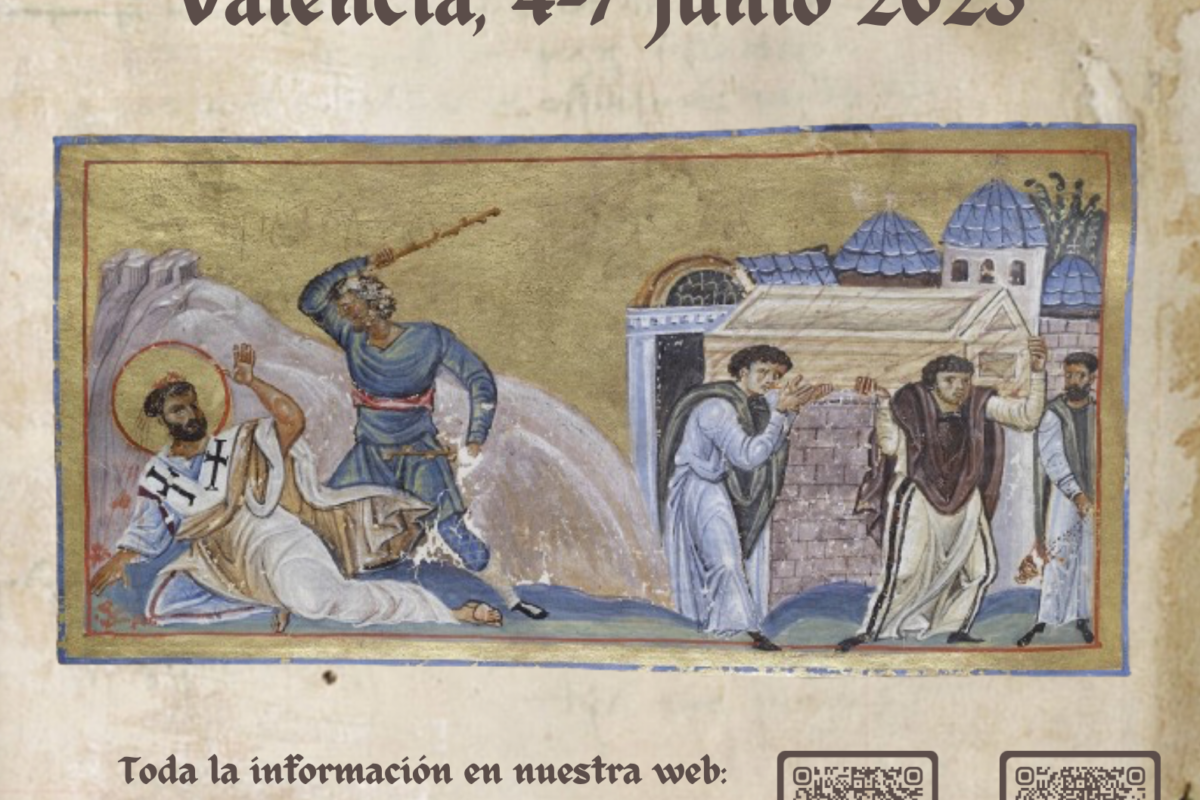 Valencia, 4-7 junio
Toda la información en nuestra web: